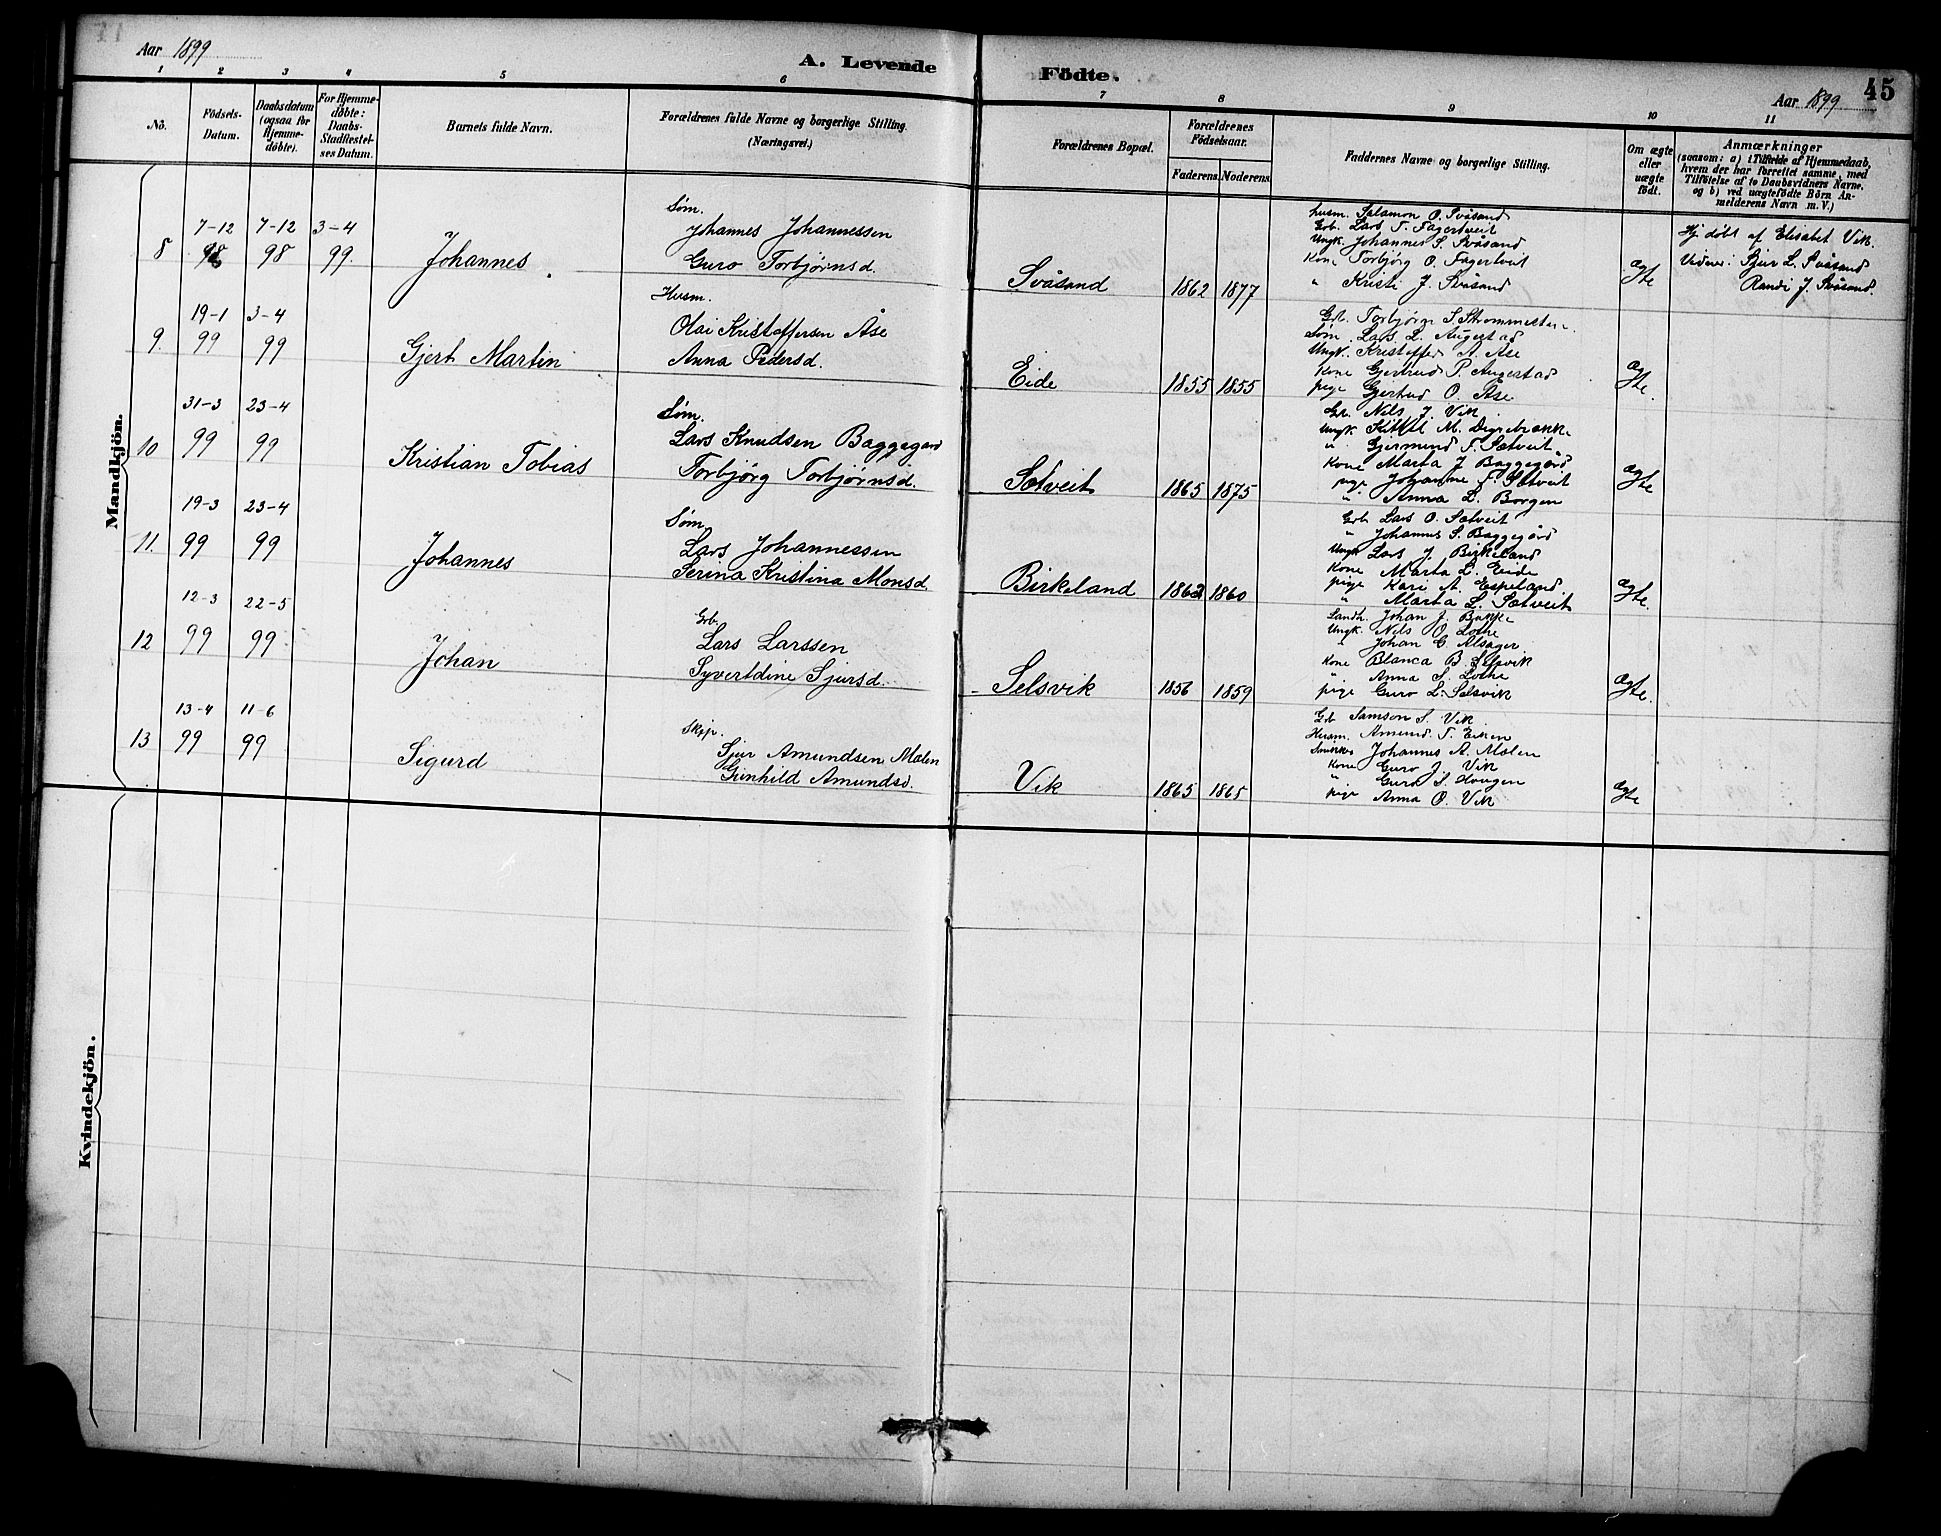 Aar 1899
A. Levende Födte.
Aar 1899
45
1 2 3 4 5 6 7 8 9 10 11
No.
Födsels-
Datum.
Daabsdatum
(ogsaa for
Hjemme-
döbte).
For Hjemme-
döbte:
Daabs-
Stadfæstel-
ses Datum.
Barnets fulde Navn.
Forældrenes fulde Navne og borgerlige Stilling.
(Næringsvei.)
Forældrenes Bopæl.
Forældrenes
Födselsaar.
Faderens. Moderens.
Faddernes Navne og borgerlige Stilling.
Om ægte
eller
uægte
födt.
Anmærkninger
(saasom: a) i Tilfælde af Hjemmedaab,
hvem der har forrettet samme, med
Tilföielse af to Daabsvidners Navne,
og b) ved uægtefödte Börn An-
melderens Navn m. V.)
Mandkjön.
8
7-12
98
7-12
98
3-4
99.
Johannes
Søm.
Johannes Johannessen
Guro Torbjørnsd.
Svåsand
1862 1877
husm. Salamon O. Svåsand
Grb. Lars T. Fagertveit
Ungk. Johannes S. Svåsand
Kone Torbjørg O. Fagertveit
" Kristi J. Svåsand
Ægte
Hj. døbt af Elisabet Vik.
Vidner: L. Svåsand
Randi J. Svåsand.
9.
19-1
99
3-4
99
Gjert Martin
Husm.
Olai Kristoffersen Åse
Anna Pedersd.
Eide
1855 1855
Grb. Torbjørn S.
Søm. Lars L. Augestad
Ungk. Kristoffer A. Åse
Kone Gjertrud P. Augestad
pige Gjertrud O. Åse
Ægte.
10
31-3
99
23-4
99
Kristian Tobias
Søm.
Lars Knudsen Baggegård
Torbjørg Torbjørnsd.
Sætveit
1865 1875
Grb. Nils J. Vik
Ungk. Kittil M. Digrebrække
" Gjermund T. Sætveit
Kone Marta J. Baggegård
pige Johanne T. Sætveit
" Anna L. Borgen
Ægte
11.
19-3
99
23-4
99
Johannes
Søm
Lars Johannessen
Serina Kristina Monsd.
Birkeland
1862 1860
Grb. Lars O. Sætveit
" Johannes S. Baggegård
Ungk. Lars J. Birkeland
Kone Marta L. Eide
pige Kari A. Espeland
" Marta L. Sætveit
Ægte.
12
12-3
99
22-5
99
Johan
Grb.
Lars Larssen
Syvertdine Sjursd.
Selsvik
1856 1859
Landh. Johan J. Bakke
Ungk. Nils O. Lothe
" Johan G. Alsager
Kone Blanca B. Selsvik
" Anna S. Lothe
pige Guro L. Selsvik
Ægte.
13
13-4
99
11-6
99
Sigurd
Skip.
Sjur Amundsen Mælen
Gunhild Amundsd.
Vik
1865 1865
Grb Samson S. Vik
Husm. Amund T. Eiken
Johannes A. Mælen
Kone Guro J. Vik
" Guro S. Haugen
pige Anna O. Vik
Ægte
Kvindekjön.